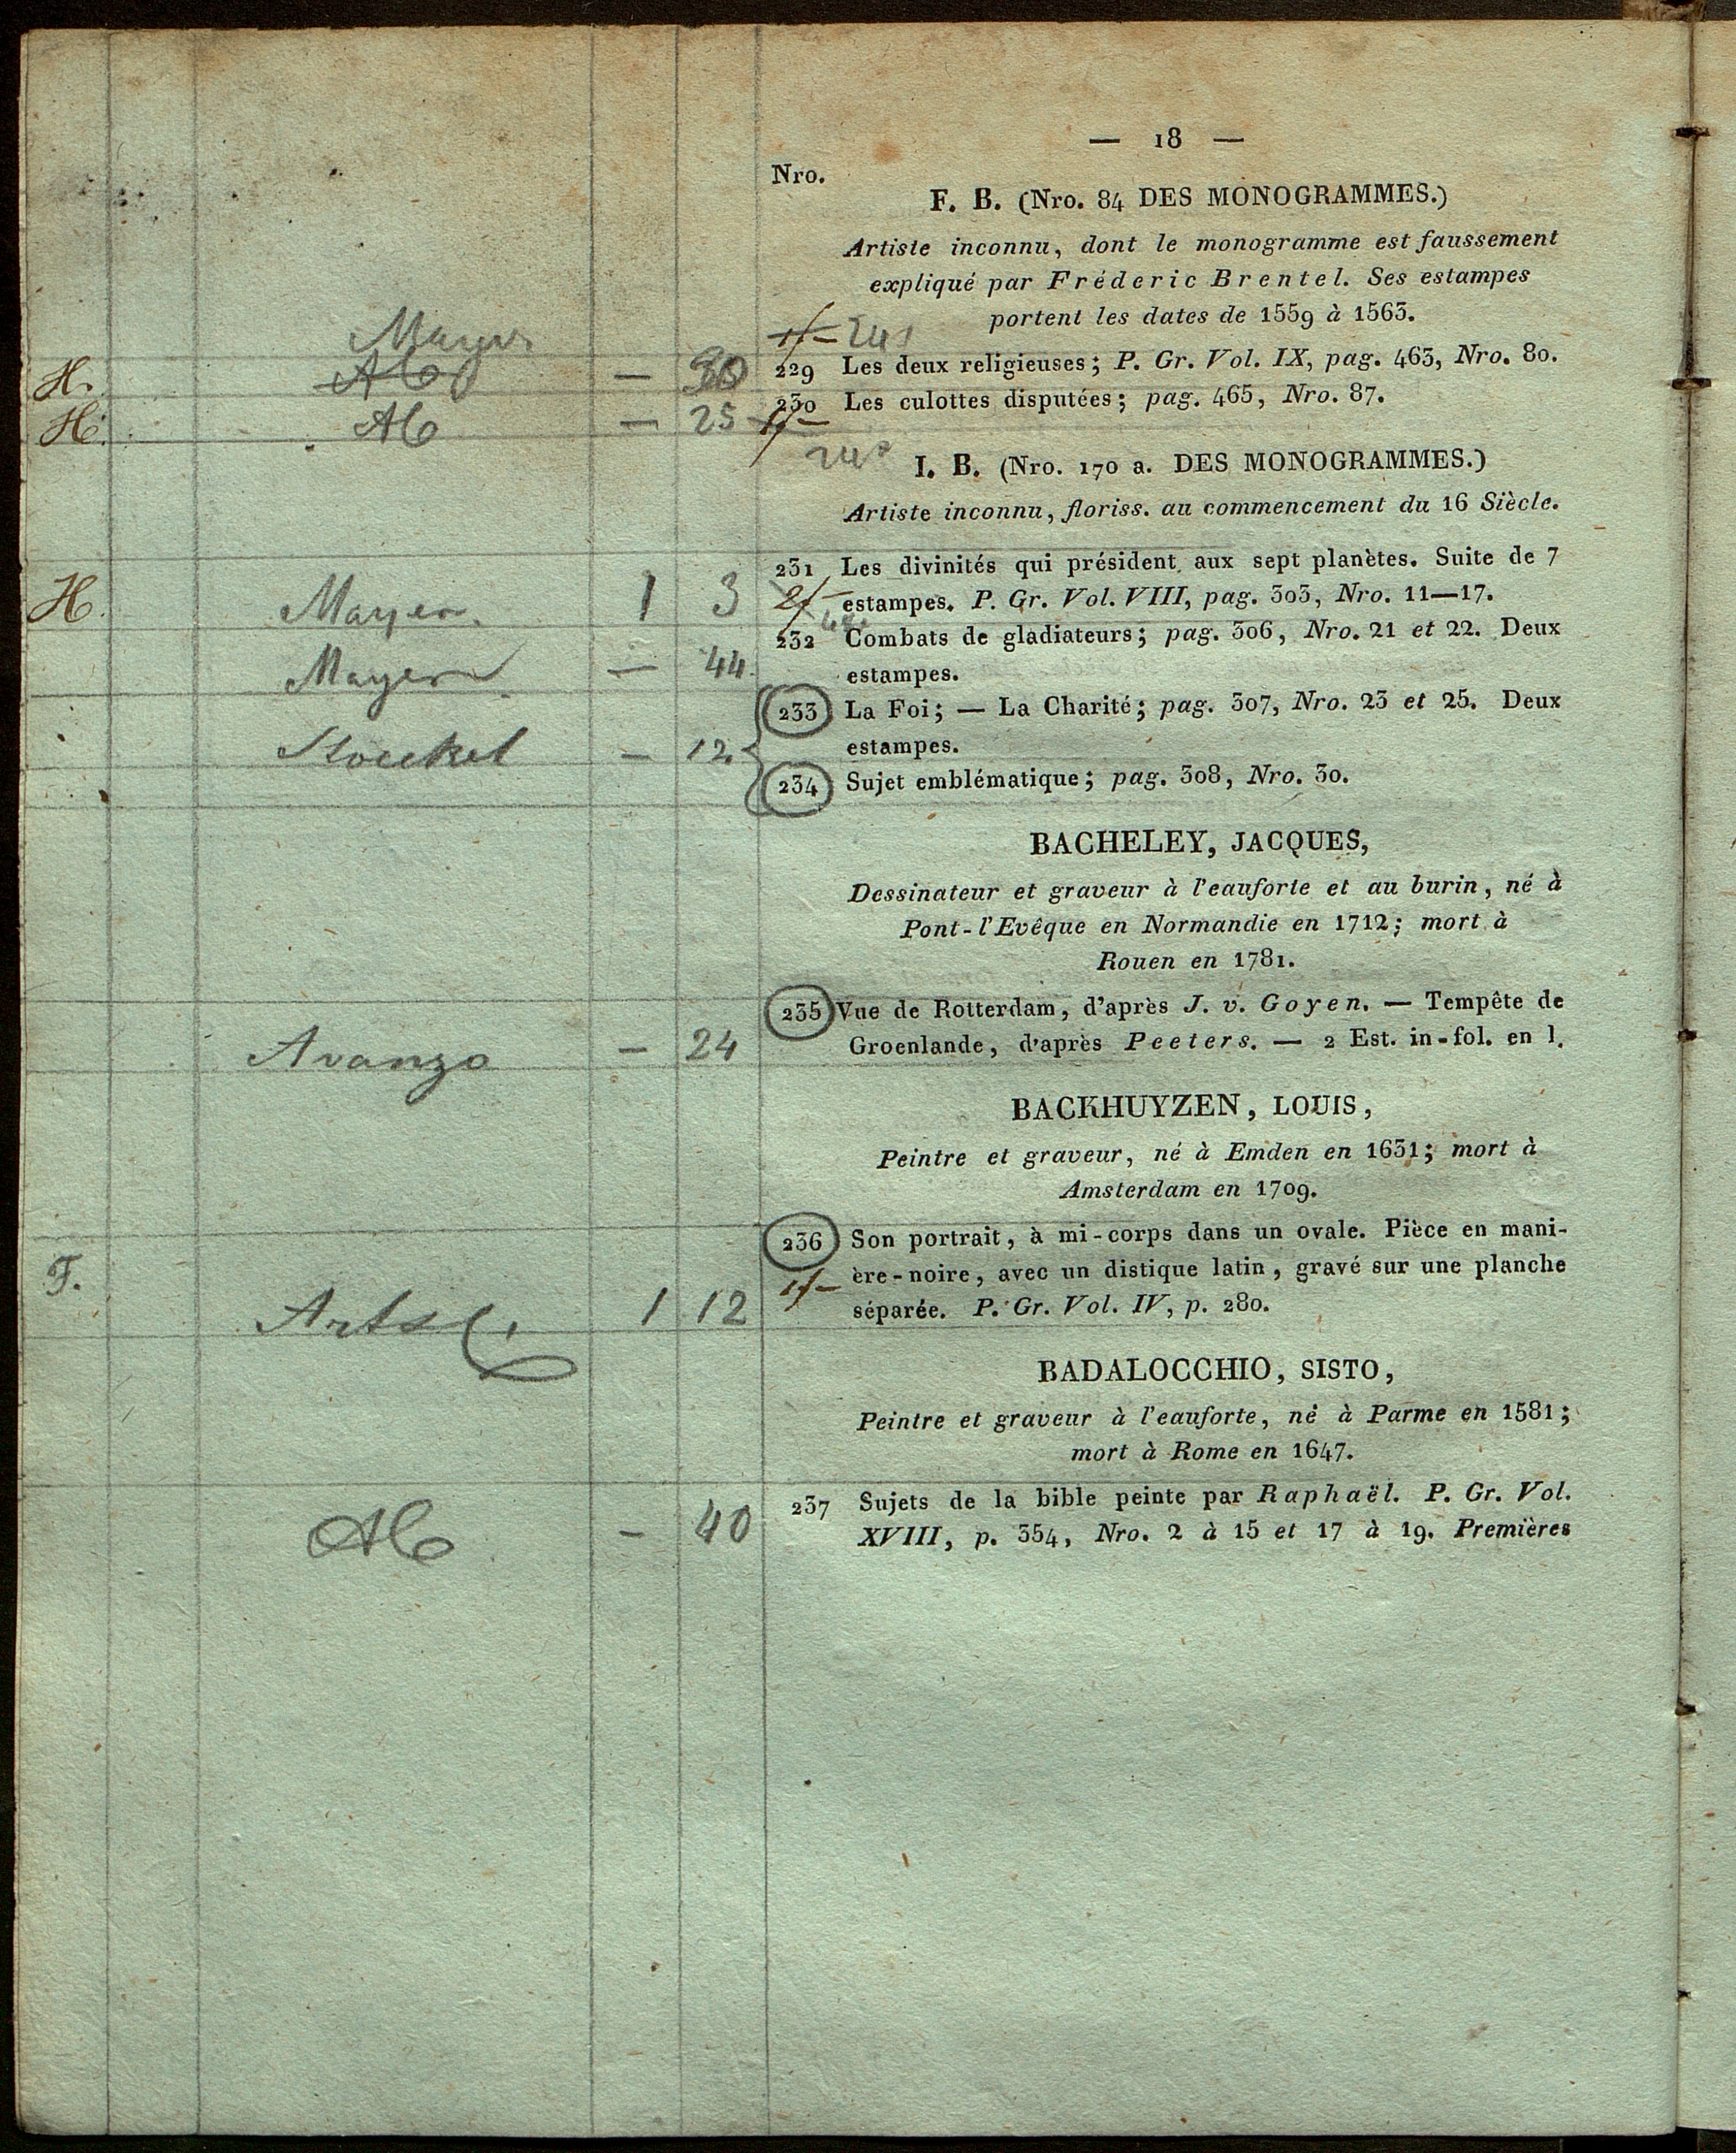 — 18 —
Nro.
F. B. (Nro. 84 DES MONOGRAMMES.)
Artiste inconnu, dont le monogramme est faussement
expliqué par Fréderic Brentel. Ses estampes
portent les dates de 1559 à 1563.
Mayer
H. — 30 229 Les deux religieuses; P. Gr. Vol. IX, pag. 463, Nro. 80.
H. AC — 25 230 Les culottes disputées; pag. 465, Nro. 87.
I. B. (Nro. 170 a. DES MONOGRAMMES.)
Artiste inconnu, floriss. au commencement du 16 Siècle.
231 Les divinités qui président aux sept planètes. Suite de 7
H. Mayer 1 3 2f— estampes. P. Gr. Vol. VIII, pag. 303, Nro. 11—17.
232 Combats de gladiateurs; pag. 306, Nro. 21 et 22. Deux
Mayer — 44 estampes.
233 La Foi; — La Charité; pag. 307, Nro. 23 et 25. Deux
Stoeckel — 12 estampes.
234 Sujet emblématique; pag. 308, Nro. 30.
BACHELEY, JACQUES,
Dessinateur et graveur à l'eauforte et au burin, né à
Pont-l'Evêque en Normandie en 1712; mort à
Rouen en 1781.
235 Vue de Rotterdam, d'après J. v. Goyen. — Tempête de
Avanzo — 24 Groenlande, d'après Peeters. — 2 Est. in-fol. en l.
BACKHUYZEN, LOUIS,
Peintre et graveur, né à Emden en 1631; mort à
Amsterdam en 1709.
236 Son portrait, à mi-corps dans un ovale. Pièce en mani-
F. 1f— ère-noire, avec un distique latin, gravé sur une planche
Arta 1 12 séparée. P. Gr. Vol. IV, p. 280.
BADALOCCHIO, SISTO,
Peintre et graveur à l'eauforte, né à Parme en 1581;
mort à Rome en 1647.
237 Sujets de la bible peinte par Raphaël. P. Gr. Vol.
AC — 40 XVIII, p. 354, Nro. 2 à 15 et 17 à 19. Premières